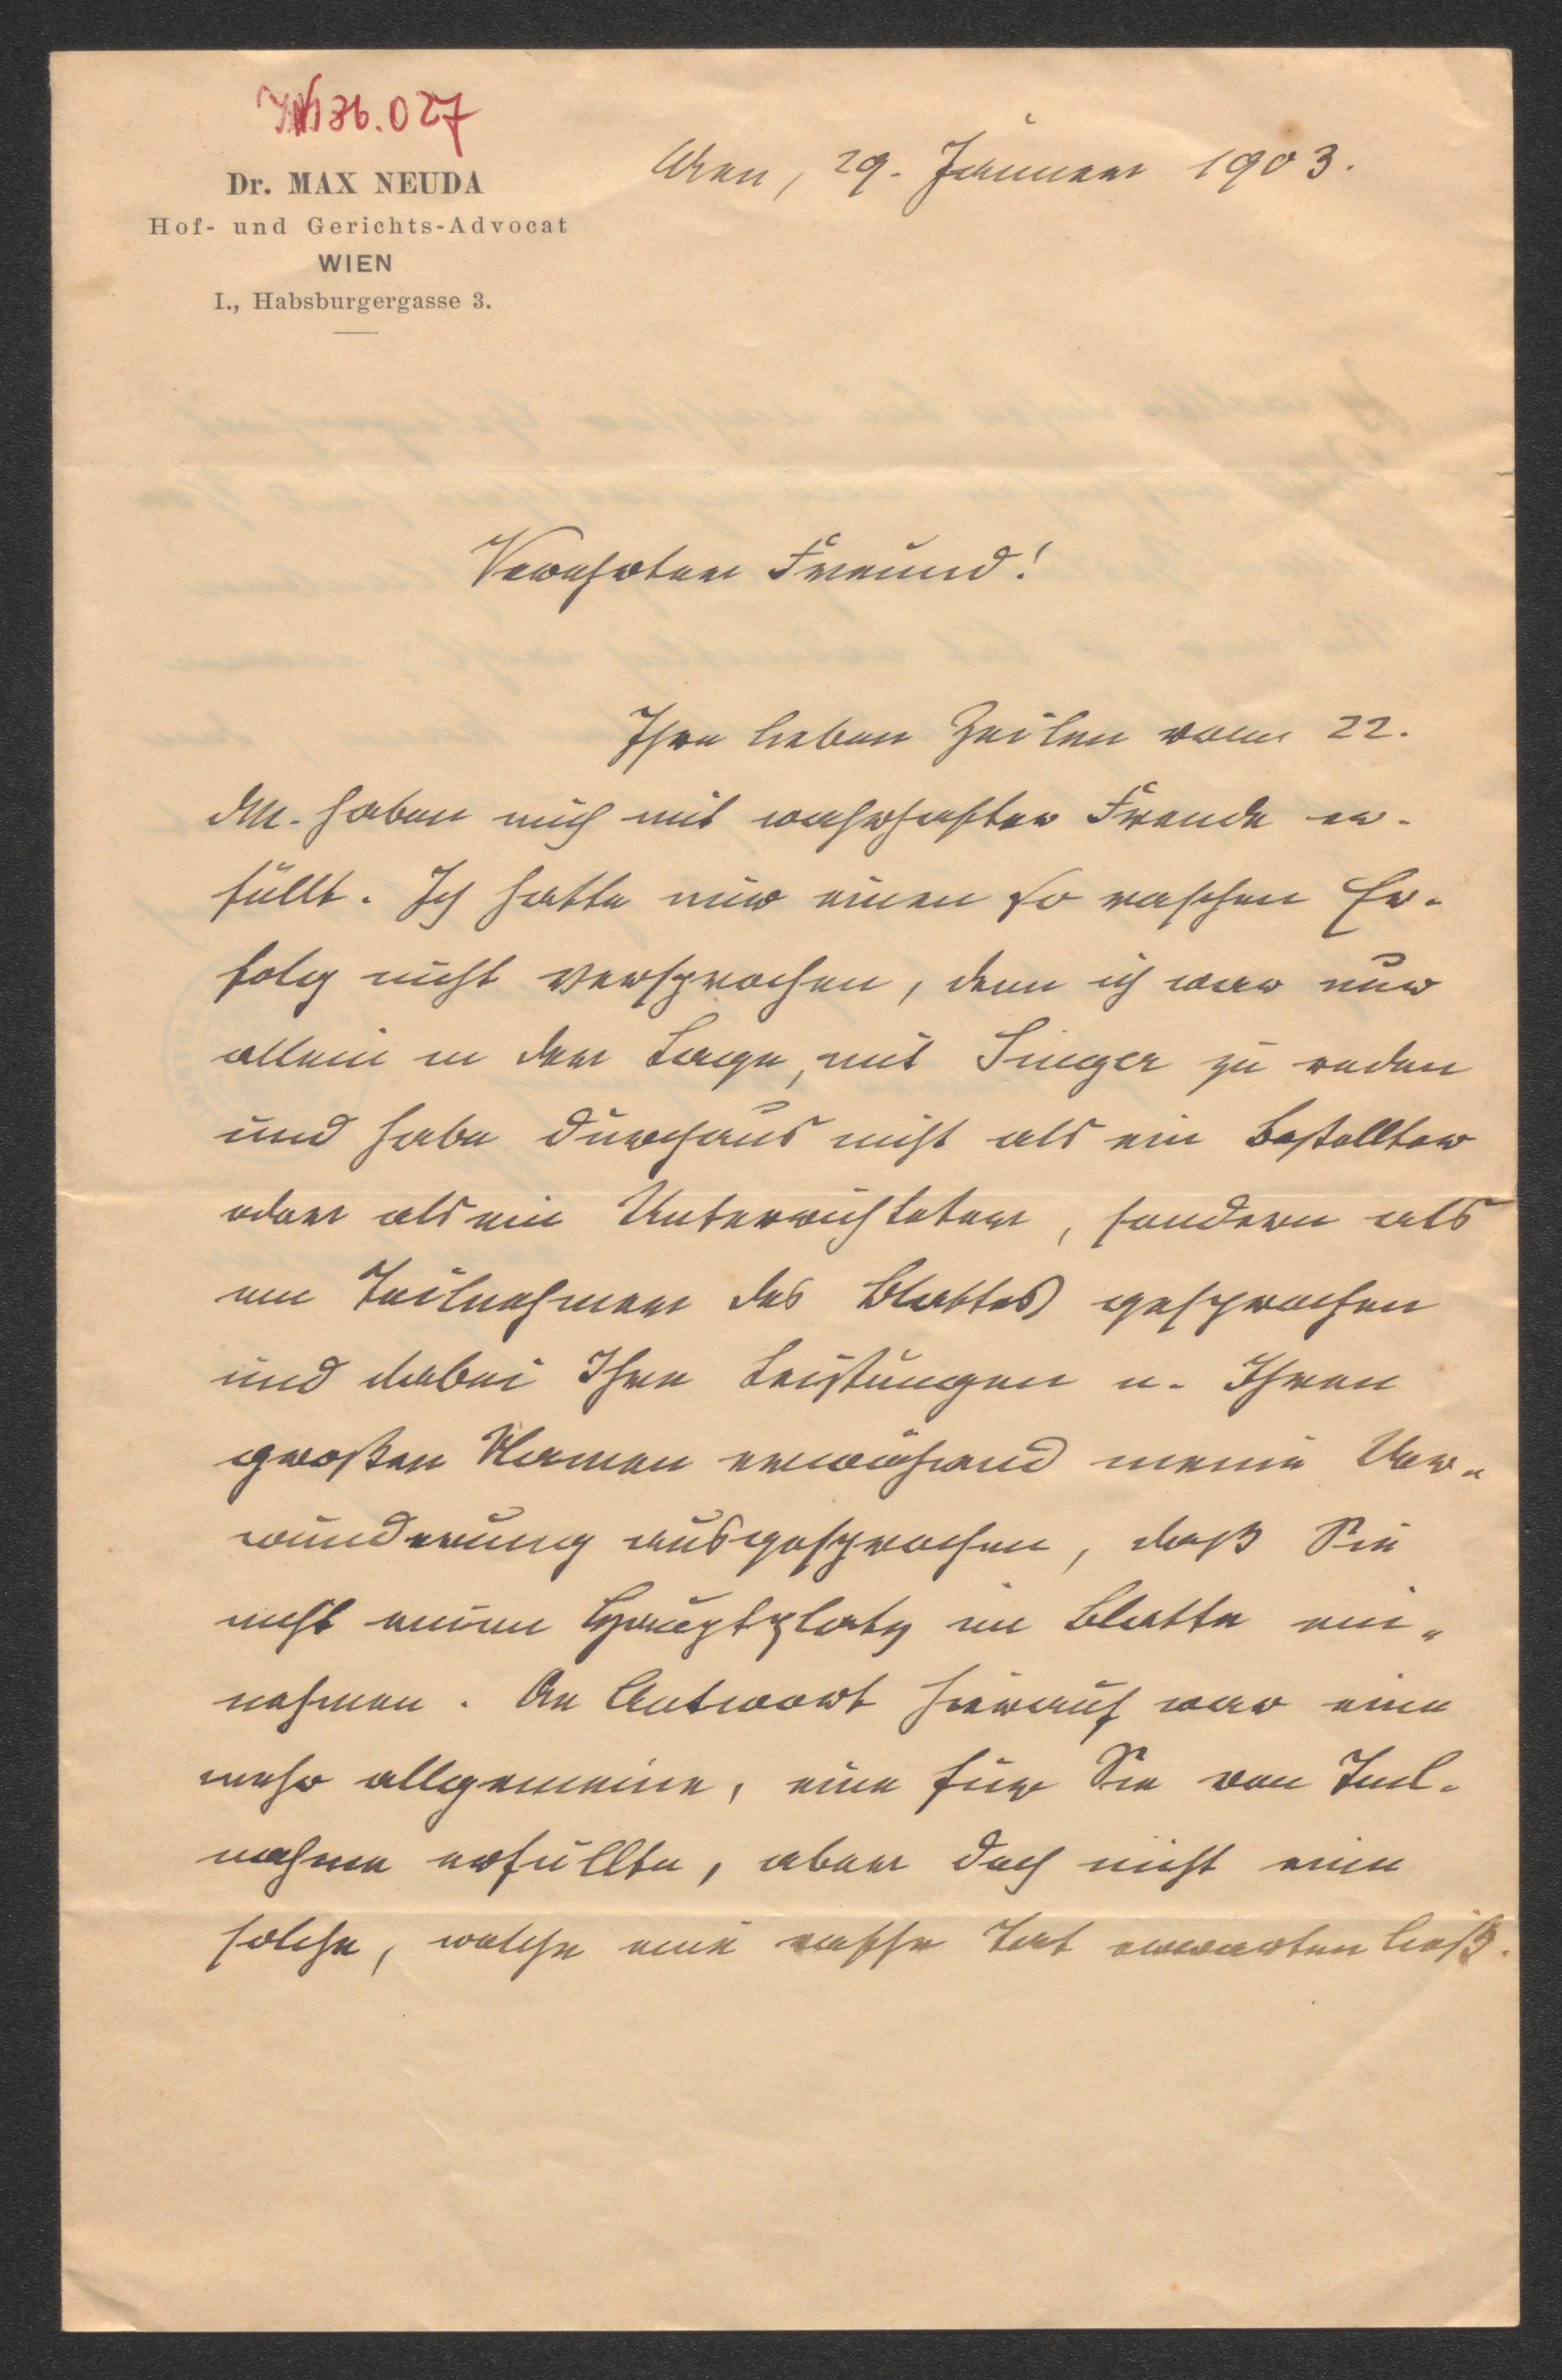 IN 136.027
Dr. MAX NEUDA
Hof- und Gerichts-Advocat
WIEN
I., Habsburgergasse 3.
Wien, 29. Jänner 1903.
Verehrter Freund!
Ihre lieben Zeilen vom 22.
dM. haben mich mit wahrhafter Freude er-
füllt. Ich hatte mir einen so raschen Er-
folg nicht versprochen, denn ich war nur
allein in der Lage, mit Singer zu reden
und habe durchaus nicht als ein Bestellter
oder als ein Unterrichteter, sondern als
ein Teilnehmer des Blattes gesprochen
und dabei Ihre Leistungen u. Ihren
großen Namen erwähnend meine Ver-
wunderung ausgesprochen, daß Sie
nicht einen Hauptplatz im Blatte ein-
nehmen. Die Antwort hierauf war eine
mehr allgemeine, eine für Sie von Teil-
nahme erfüllte, aber doch nicht eine
solche, welche eine rasche Tat erwarten ließ.